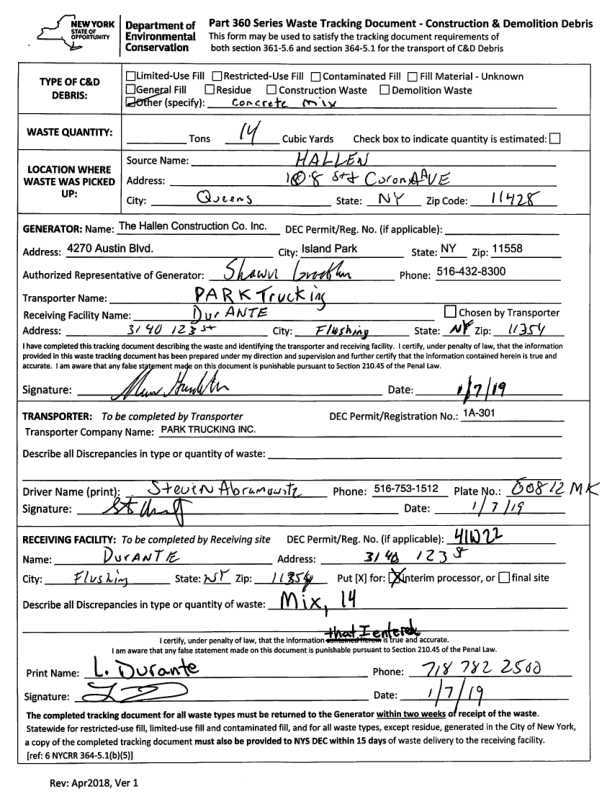 NEW YORK
STATE OF
OPPORTUNITY
Department of
Environmental
Conservation
Part 360 Series Waste Tracking Document - Construction & Demolition Debris
This form may be used to satisfy the tracking document requirements of
both section 361-5.6 and section 364-5.1 for the transport of C&D Debris
TYPE OF C&D
DEBRIS:
Limited-Use Fill Restricted-Use Fill Contaminated Fill Fill Material - Unknown
General Fill Residue Construction Waste Demolition Waste
Other (specify): Concrete mix
WASTE QUANTITY: Tons 14 Cubic Yards Check box to indicate quantity is estimated:
LOCATION WHERE
WASTE WAS PICKED
UP:
Source Name: HALLEN
Address: 108 st & Corona AVE
City: Queens State: NY Zip Code: 11428
GENERATOR: Name: The Hallen Construction Co. Inc. DEC Permit/Reg. No. (if applicable):
Address: 4270 Austin Blvd. City: Island Park State: NY Zip: 11558
Authorized Representative of Generator: Shawn Phone: 516-432-8300
Transporter Name: PARK Trucking
Receiving Facility Name: DurANTE Chosen by Transporter
Address: 3140 123 st City: Flushing State: NY Zip: 11354
I have completed this tracking document describing the waste and identifying the transporter and receiving facility. I certify, under penalty of law, that the information
provided in this waste tracking document has been prepared under my direction and supervision and further certify that the information contained herein is true and
accurate. I am aware that any false statement made on this document is punishable pursuant to Section 210.45 of the Penal Law.
Signature: Date: 1/7/19
TRANSPORTER: To be completed by Transporter DEC Permit/Registration No.: 1A-301
Transporter Company Name: PARK TRUCKING INC.
Describe all Discrepancies in type or quantity of waste:
Driver Name (print): Steven Abramowitz Phone: 516-753-1512 Plate No.: 60812 MK
Signature: Date: 1/7/19
RECEIVING FACILITY: To be completed by Receiving site DEC Permit/Reg. No. (if applicable): 41W22
Name: DurANTE Address: 3140 123 st
City: Flushing State: NY Zip: 11354 Put [X] for: X interim processor, or final site
Describe all Discrepancies in type or quantity of waste: Mix, 14
that I entered
I certify, under penalty of law, that the information contained herein is true and accurate.
I am aware that any false statement made on this document is punishable pursuant to Section 210.45 of the Penal Law.
Print Name: L. Durante Phone: 718 782 2500
Signature: Date: 1/7/19
The completed tracking document for all waste types must be returned to the Generator within two weeks of receipt of the waste.
Statewide for restricted-use fill, limited-use fill and contaminated fill, and for all waste types, except residue, generated in the City of New York,
a copy of the completed tracking document must also be provided to NYS DEC within 15 days of waste delivery to the receiving facility.
[ref: 6 NYCRR 364-5.1(b)(5)]
Rev: Apr2018, Ver 1